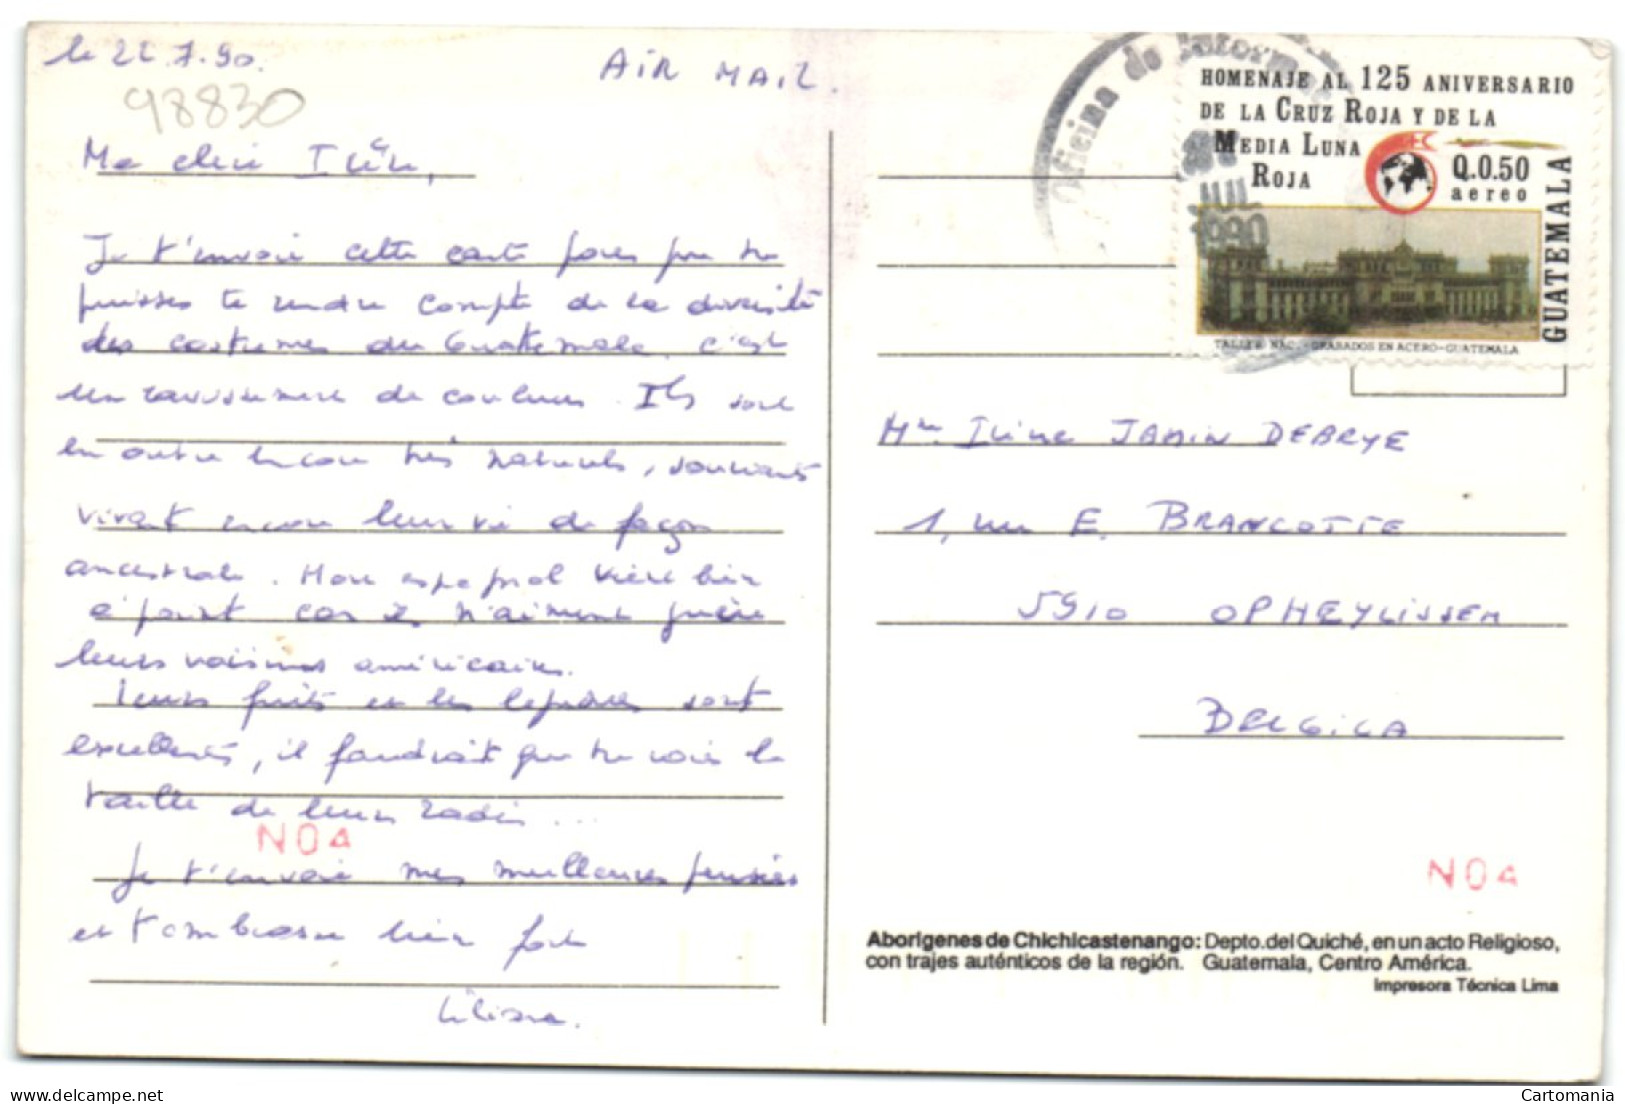 le 22.7.90.
AIR MAIL.
98830
Ma chère Irène,
Je t'envoie cette carte pour que tu
puisses te rendre compte de la diversité
des costumes du Guatemala, c'est
un ravissement de couleurs. Ils sont
en outre encore très naturels, souriants
vivant encore leur vie de façon
ancestrale. Mon espagnol vient bien
à point car ils n'aiment guère
leurs voisins américains.
Leurs fruits et les légumes sont
excellents, il faudrait que tu voies la
taille de leurs radis...
Je t'envoie mes meilleures pensées
et t'embrasse bien fort
Liliane.
NO4
Oficina de
JUL
1990
HOMENAJE AL 125 ANIVERSARIO
DE LA CRUZ ROJA Y DE LA
MEDIA LUNA
ROJA
Q.0.50
aereo
GUATEMALA
TALLER NAC. GRABADOS EN ACERO-GUATEMALA
Mme Irène JAMIN DEBRYE
1, rue E. BRANCOTTE
5910 OPHEYLISSEM
BELGICA
NO4
Aborigenes de Chichicastenango: Depto. del Quiché, en un acto Religioso,
con trajes auténticos de la región. Guatemala, Centro América.
Impresora Técnica Lima
Cartomania